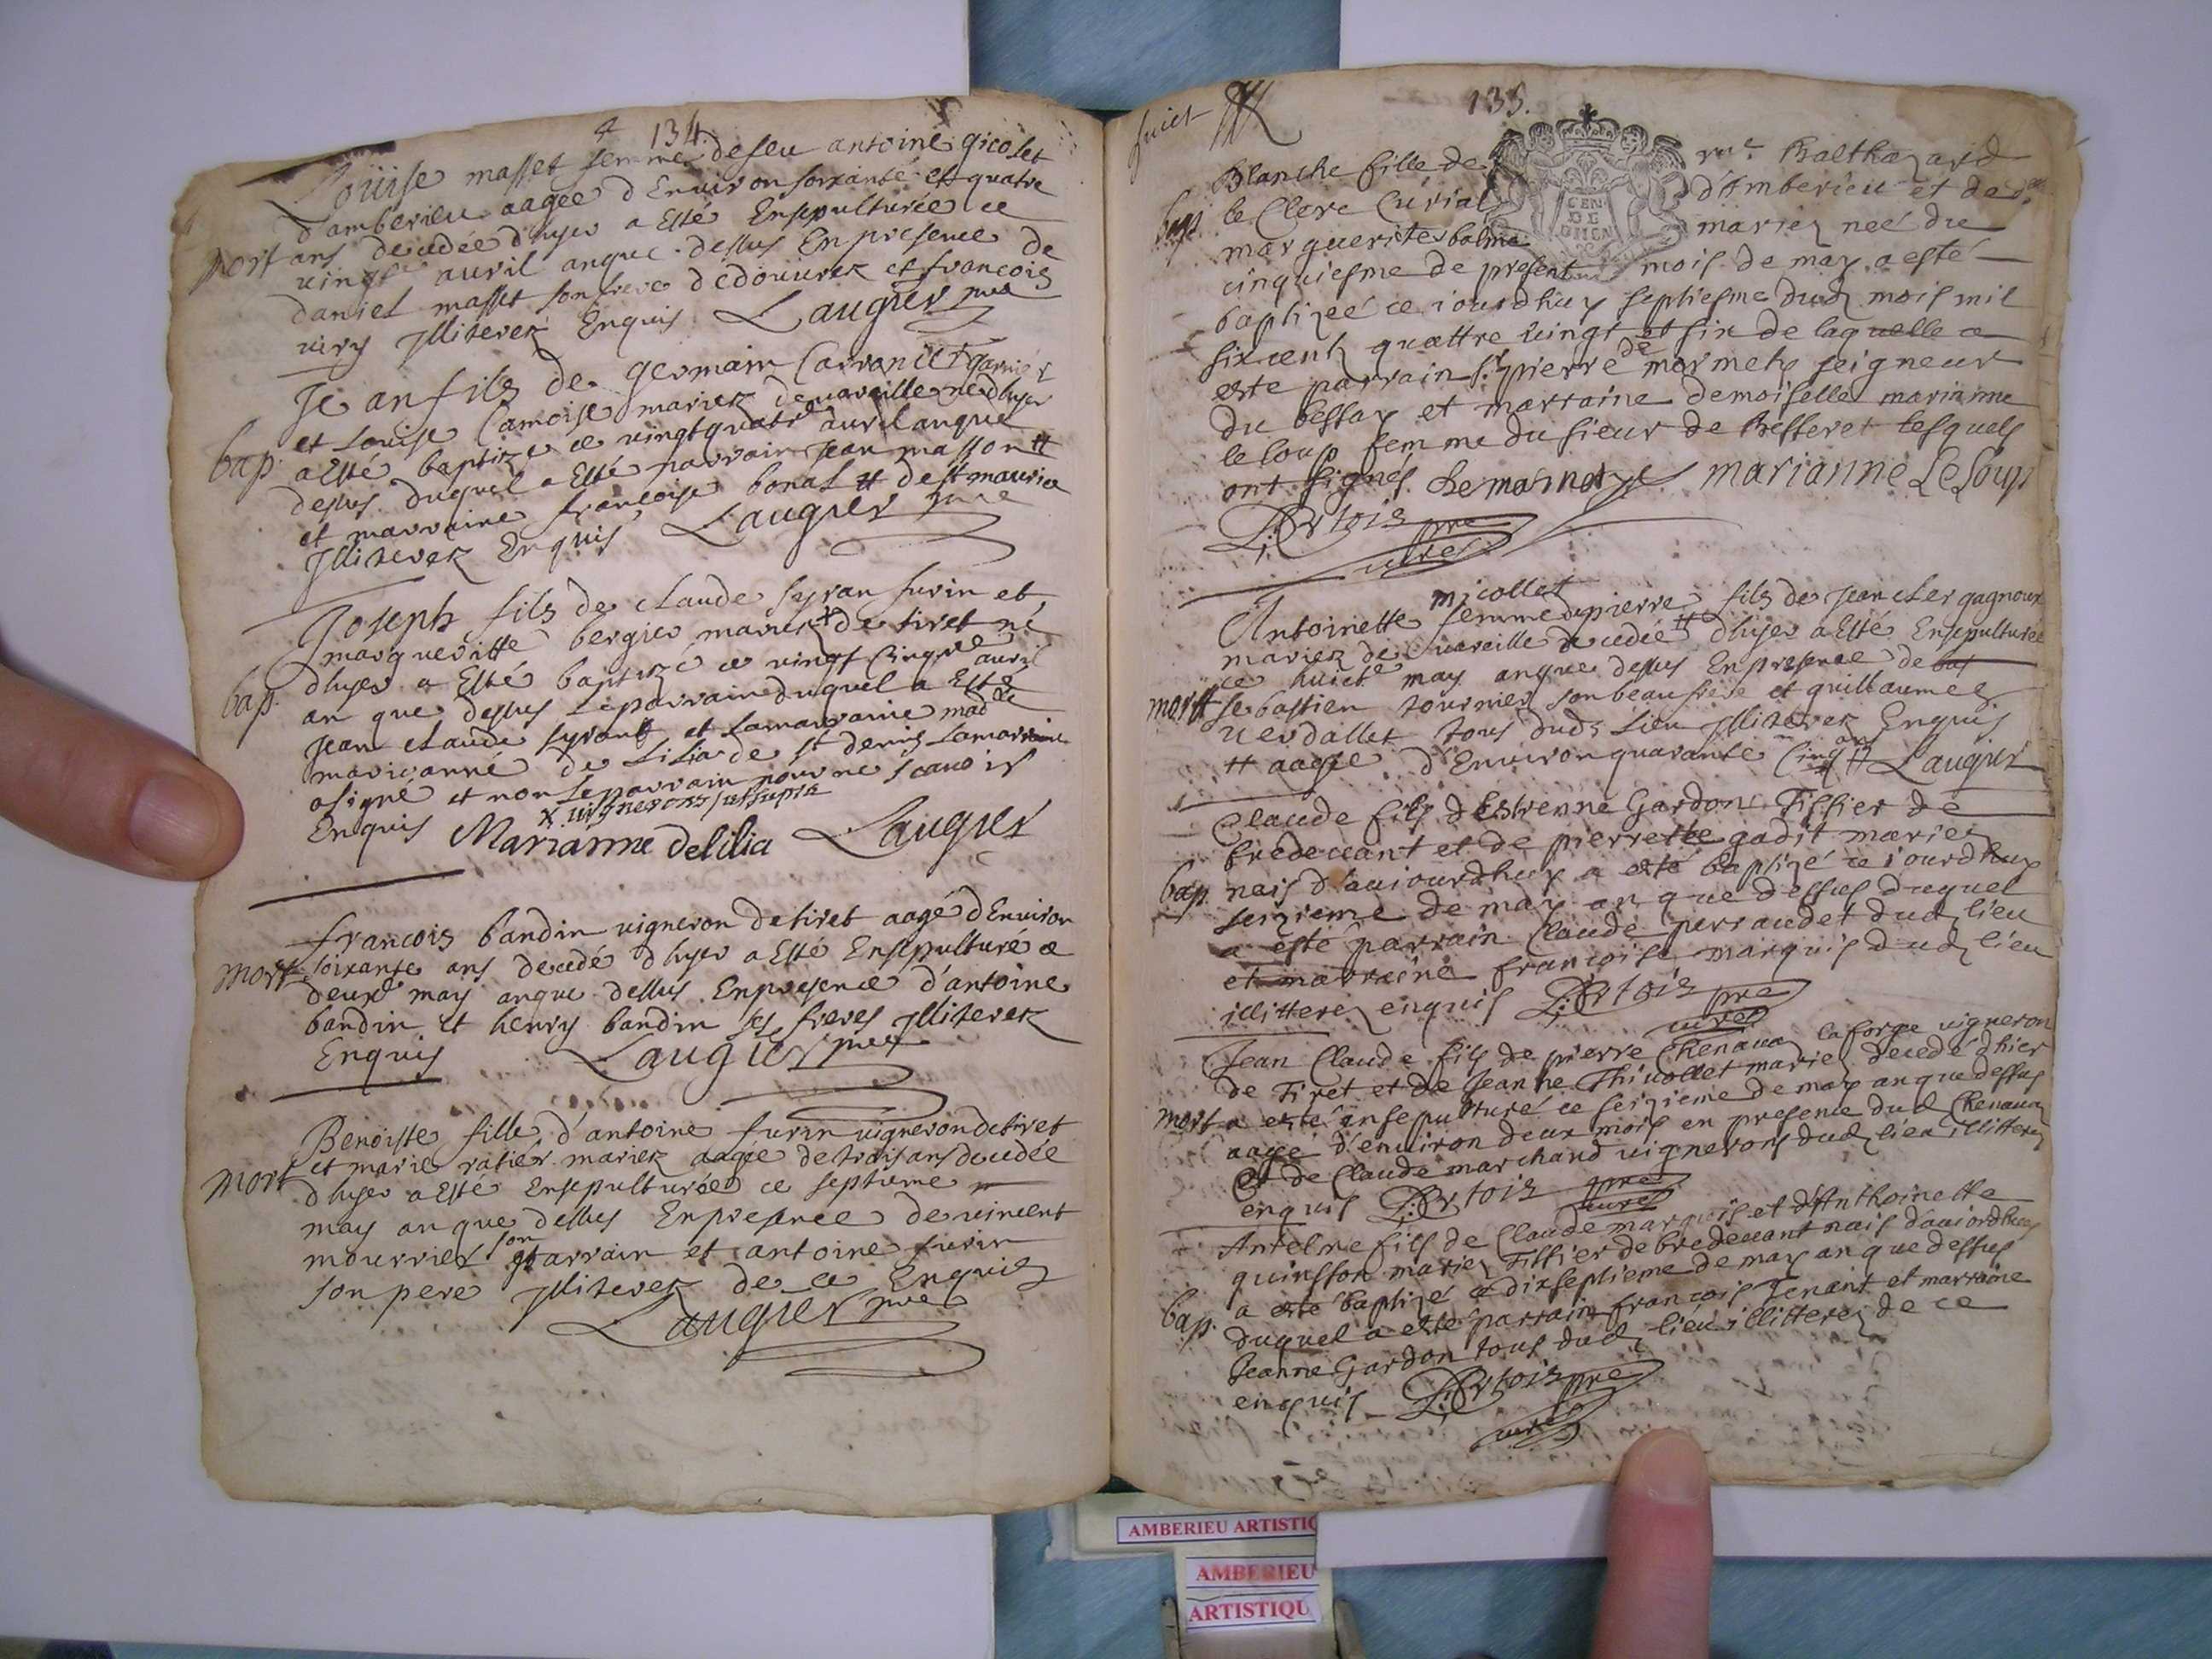 134
Louise masset femme de feu antoine gicolet
d'amberieu aagée d'Environ soixante et quatre
mort ans decedée d'hyer a Esté Ensepulturée ce
vingt avril anque dessus En presence de
daniel masset son frere dedouurez et francois
very Illiterez Enquis Laugier pbre
Jean fils de germain Carron dt garnier
et Louise Camoise mariez de vareille né dhyer
bap. a Esté baptizé ce vingtquatre avril anque
dessus duquel a Esté parrain Jean masson
et marraine francoise bonat de st maurice
Illiterez Enquis Laugier pbre
Joseph fils de claude syran furin et
margueritte bergier mariez de tiret né
dhyer a Esté baptizé ce vingt cinque avril
bap. an que dessus Le parrain duquel a Esté
Jean claude syran et La marraine madlle
marianne de Lilia de st denis La marraine
a signé et non Le parrain pour ne scavoir
Enquis x vignerons jusdupra
Marianne delilia Laugier
francois bandin vigneron de tiret aagé d'Environ
mort soixante ans decedé d'hyer a Esté Ensepulturé ce
deux may anque dessus En presence d'antoine
bandin et henry bandin ses freres Illiterez
Enquis Laugier pbre
Benoiste fille d'antoine furin vigneron de tiret
mort et marie ratier mariez aagée de trois ans decedée
dhyer a Esté Ensepulturée ce septieme
may an que dessus En presence de vincent
mourrier son parrain et antoine furin
son pere Illiterez de ce Enquis
Laugier pbre
135.
Blanche fille de me Balthazard
bap. le Clerc Curial d'Amberieu et de de
marguerite balme mariez neé du
cinquiesme de present mois de may a esté
baptizeé ce iourdhuy septiesme dud mois mil
six cent quattre vingt et six de laquelle a
esté parrain sr pierre de mormets seigneur
du bessay et marraine demoiselle marianne
le loup femme du sieur de Besseret lesquels
ont signés. De mornex marianne Le Loup
D: Ertois pre
curé
micollet
Antoinette femme de pierre fils de Jean cler gagnoux
mariez de vareille decedée d'hyer a Esté Ensepulturée
ce huict may anque dessus En presence de
mort sebastien tournier son beau frere et guillaume
verdallet tous duds lieu Illiterez Enquis
aagée d'Environ quarante cinq an Laugier
Claude fils d'Estienne Gardon Tissier de
bredevant et de pierrette gadit mariez
bap. nais d'auiourdhuy a esté baptizé ce iourdhuy
seizieme de may an que dessus duquel
a esté parrain Claude perraudet dud lieu
et marraine francoise marquis dud lieu
illitterez enquis D: Ertois pre
curé
Jean Claude fils de pierre Chenavaz laforge vigneron
de Tiret et de Jeanne Thivollet mariez decedé dhier
mort a esté ensepulturé ce seizieme de may an que dessus
aagé d'environ deux mois en presence dud Chenavaz
et de Claude marchand vignerons dud lieu illitterez
enquis D: Ertois pre
curé
Antelme fils de Claude marquis et d'Anthoinette
quinsson mariez Tissier de bredevant nais d'auiordhuy
bap. a esté baptizé ce dixseptieme de may an que dessus
duquel a esté parrain francois Tenant et marraine
Jeanne Gardon tous dud lieu illitterez de ce
enquis D: Ertois pre
curé
AMBERIEU ARTISTIQ
AMBERIEU
ARTISTIQU